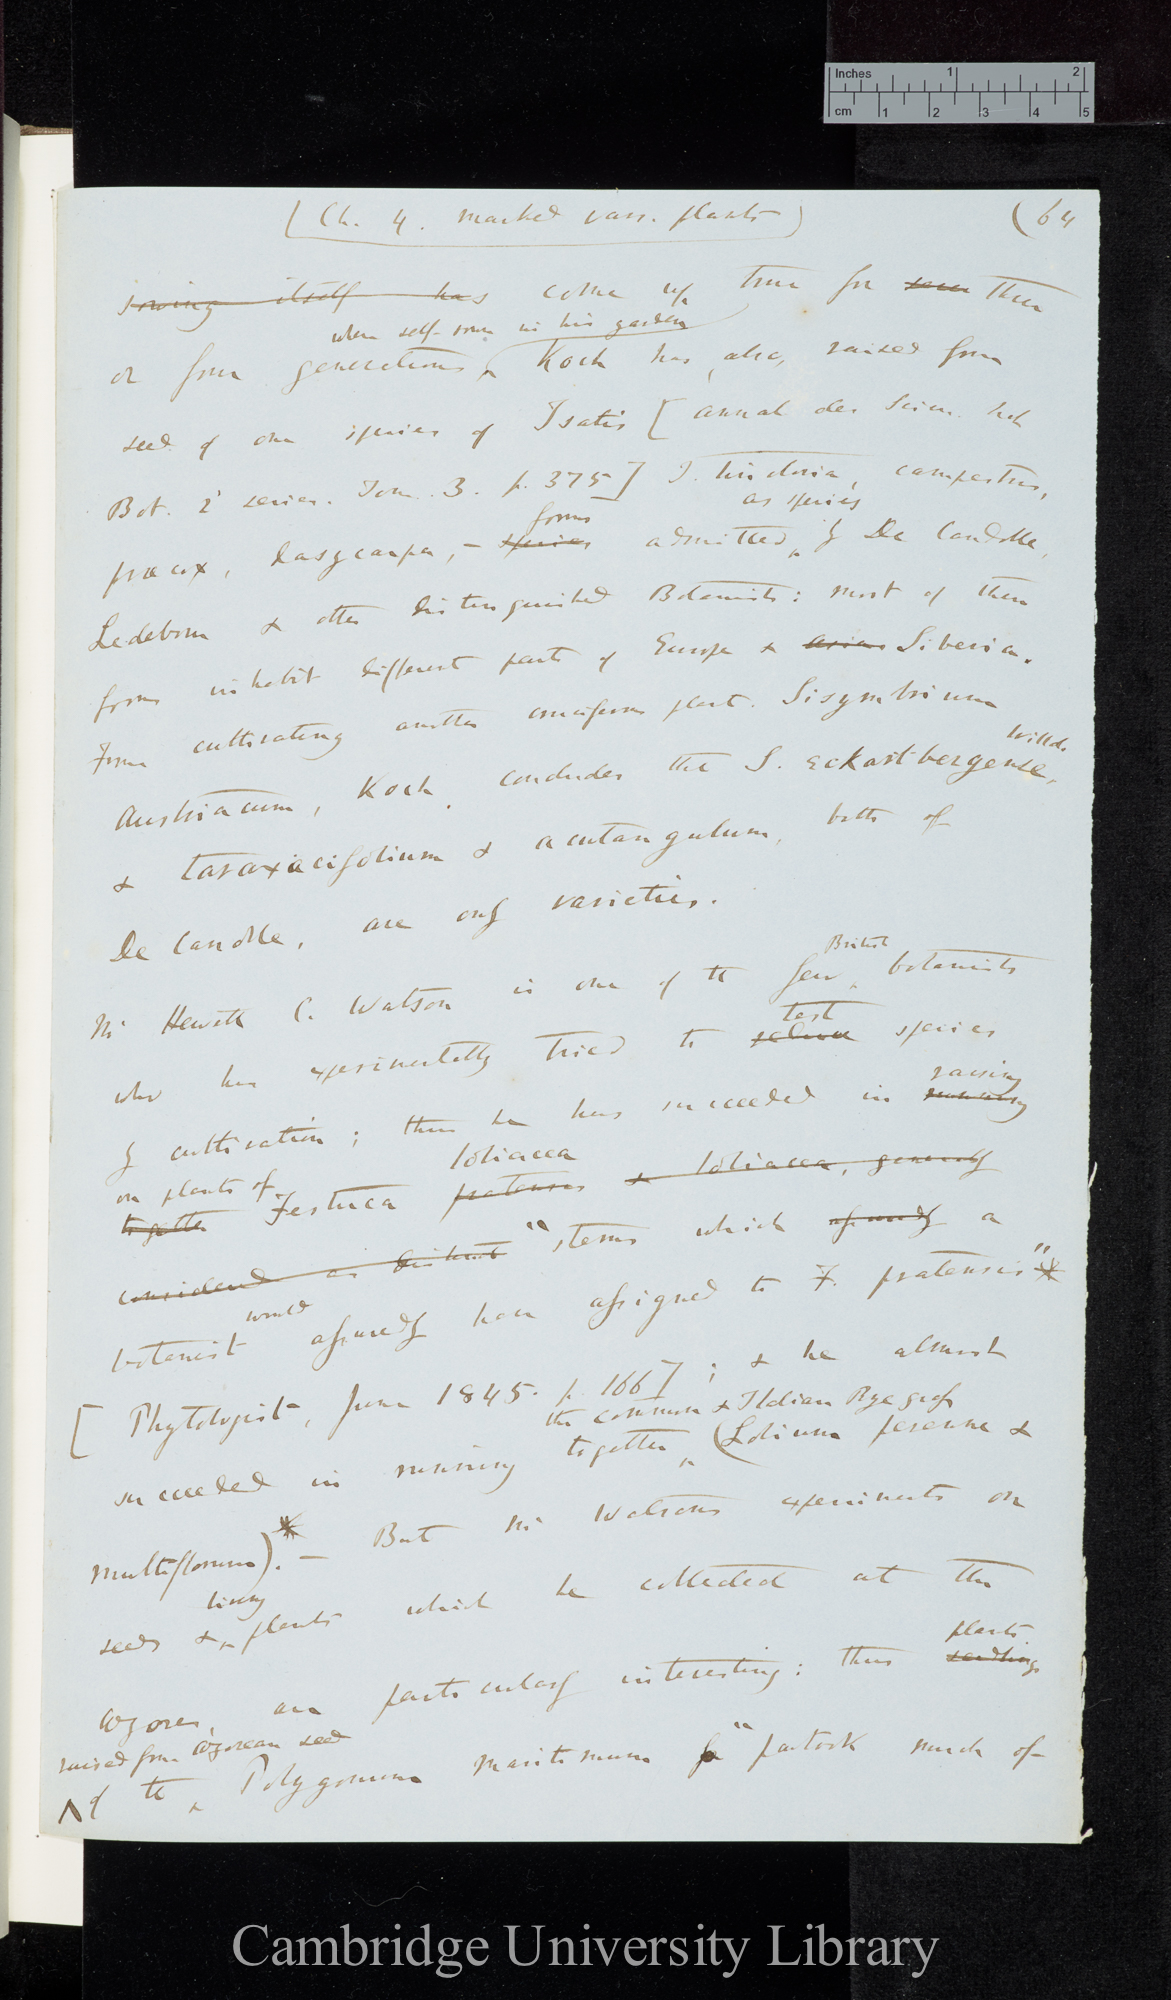 Inches 1 2
cm 1 2 3 4 5
(Ch. 4. marked vars. plants)
(64
sowing itself has come up true for seven three
when self-sown in his garden
or four generations, Koch has, also, raised from
seed of one species of Isatis [Annal des Scien. Nat
Bot. 2' series. Tom. 3. p. 375] I. tinctoria, campestris,
forms
as species
præcox, dasycarpa, – species admitted by De Candolle,
Ledebour & other distinguished Botanists: most of these
forms inhabit different parts of Europe & Asia Siberia.
From cultivating another cruciferous plant. Sisymbrium
Willd.
Austriacum, Koch, concludes that S. eckartsbergense,
& taraxacifolium & acutangulum, both of
De Candolle, are only varieties.
British
Mr Hewett C. Watson is one of the few botanists
test
who has experimentally tried to species
raising
by cultivation; thus he has succeeded in running
loliacea
on plants of
together Festuca pratensis & loliacea, generally
considered as distinct "stems which assuredly a
would
botanist assuredly have assigned to F. pratensis"*
[Phytologist, June 1845. p. 166]; & he almost
the common & Italian Rye grass
succeeded in running together (Lolium perenne &
multiflorum).* – But Mr Watsons experiments on
living
seeds & plants which he collected at the
plants
Azores, are particularly interesting: thus seedlings
raised from Azorean seed
of the Polygonum maritimum "partook much of
Cambridge University Library